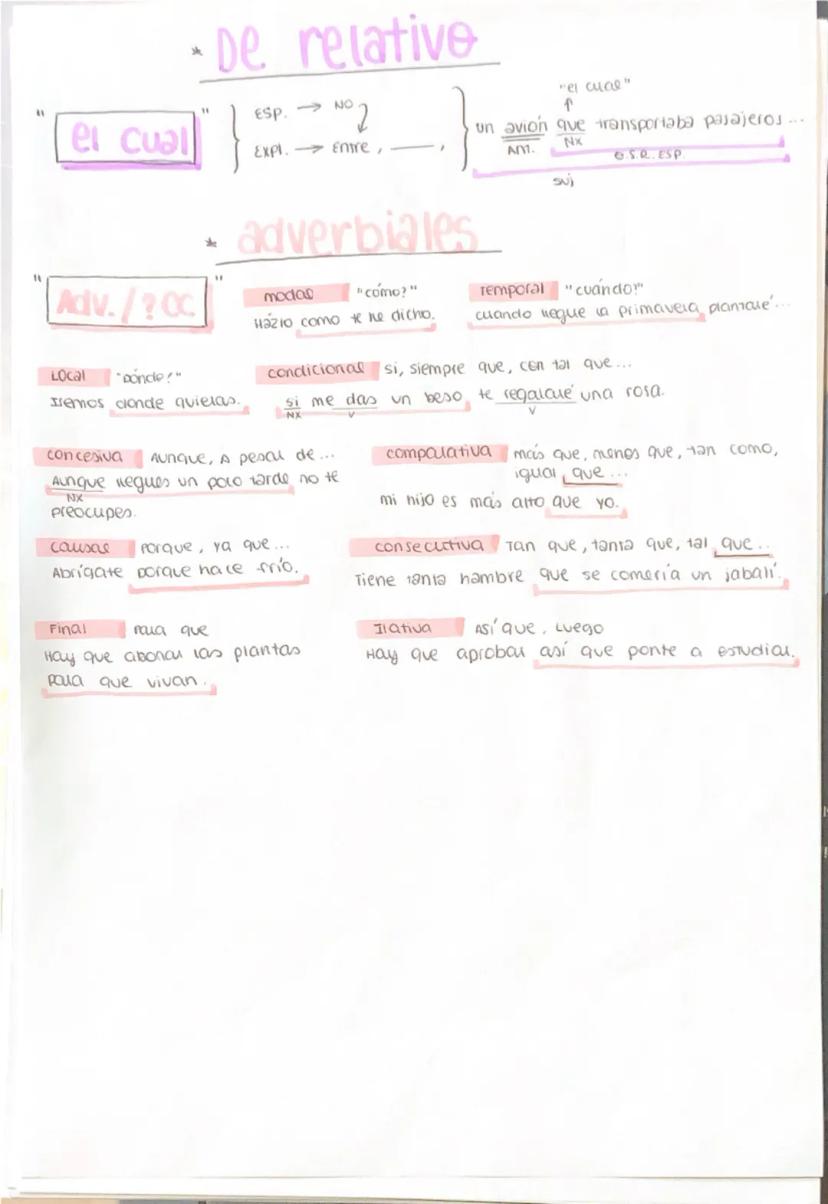 * De relativo
"el cual"
"el cual" ESP. → NO
Expl. → Entre , ___ ,
un avión que transportaba pasajeros...
Ant. Nx
O.S.R. ESP.
suj
* adverbiales
"Adv. / ? CC"
modal "cómo?"
Házlo como te he dicho.
Temporal "cuándo?"
cuando llegue la primavera plantaré...
Local "Dónde?"
Iremos donde quieras.
condicional si, siempre que, con tal que...
si me das un beso, te regalaré una rosa.
NX V V
concesiva Aunque, A pesar de...
Aunque llegues un poco tarde no te
NX
preocupes.
comparativa más que, menos que, tan como,
igual que...
mi hijo es más alto que yo.
causal Porque, ya que...
Abrígate porque hace frío.
consecutiva Tan que, tanta que, tal que...
Tiene tanta hambre que se comería un jabalí.
Final Para que
Hay que abonar las plantas
para que vivan.
Ilativa Así que, Luego
Hay que aprobar así que ponte a estudiar.